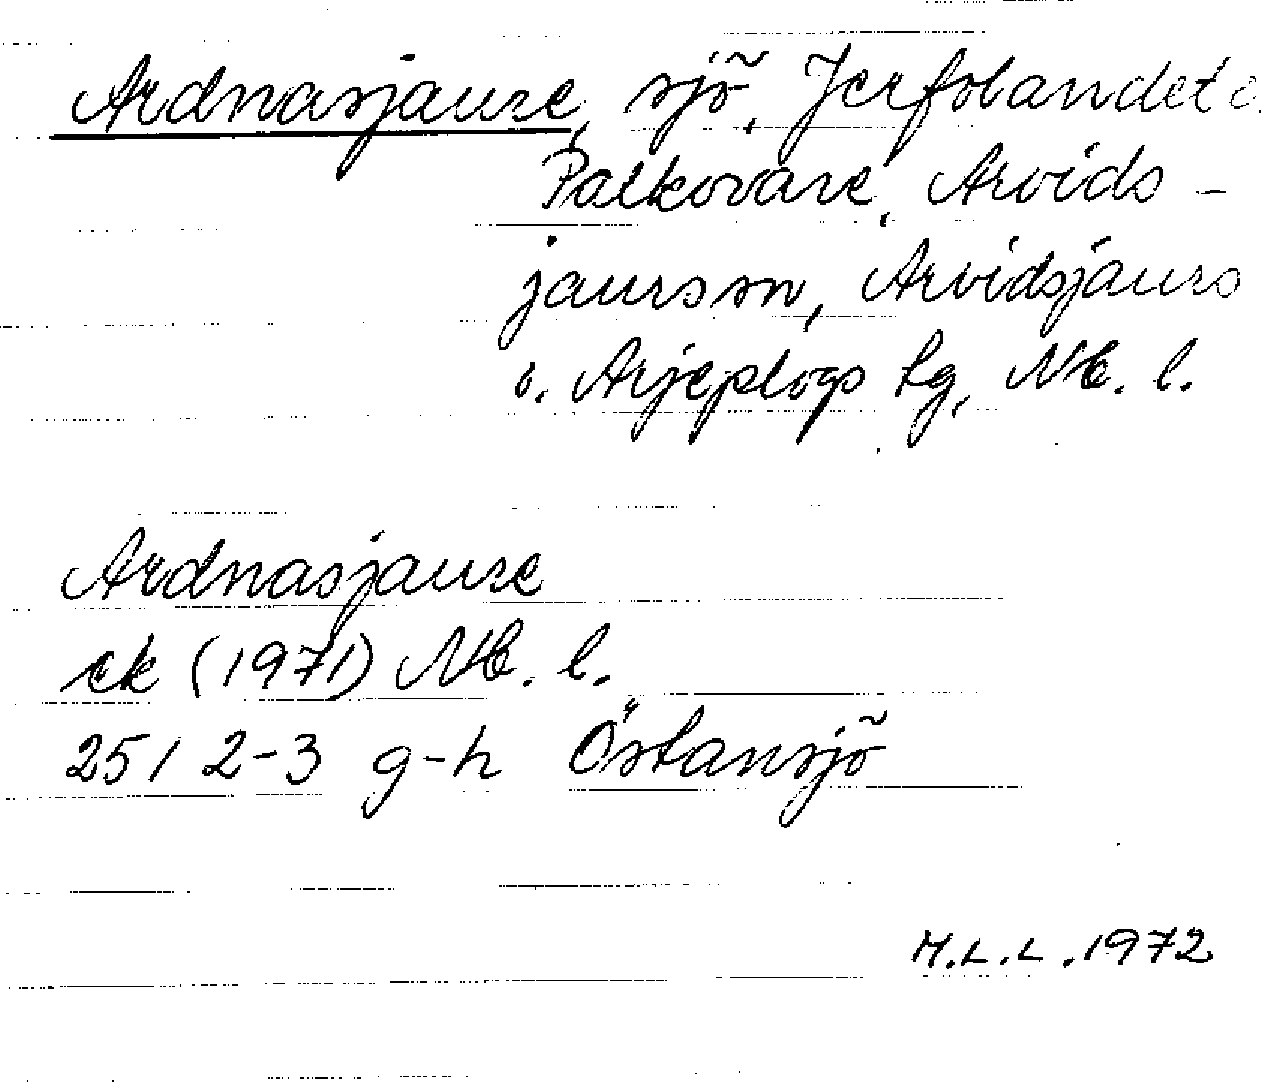 Ardnasjaure, sjö, Jerfolandet o.
Palkovare, Arvids-
jaurs sn, Arvidsjaurs
o. Arjeplogs lg, Nb. l.
Ardnasjaure
ek (1971) Nb. l.
25 I 2-3 g-h Östansjö
M.L.L. 1972